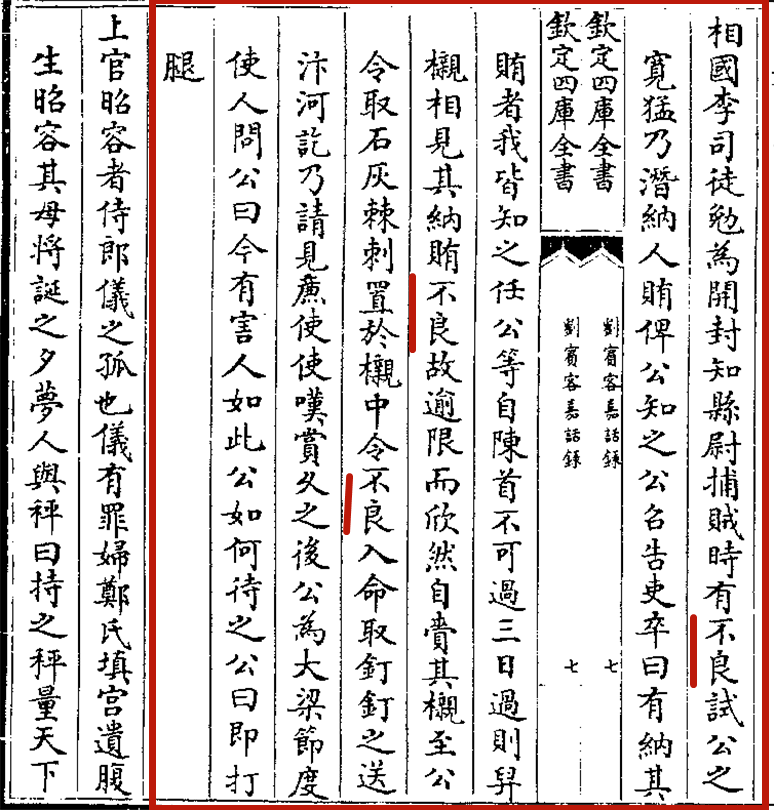 相國李司徒勉為開封知縣尉捕賊時有不良試公之
寛猛乃潛納人賄俾公知之公召告吏卒曰有納其
欽定四庫全書
劉賓客嘉話錄
七
欽定四庫全書
劉賓客嘉話錄
七
賄者我皆知之任公等自陳首不可過三日過則舁
櫬相見其納賄不良故逾限而欣然自賷其櫬至公
令取石灰棘刺置於櫬中令不良入命取釘釘之送
汴河訖乃請見廉使使嘆賞久之後公為大梁節度
使人問公曰今有害人如此公如何待之公曰即打
腿
上官昭容者侍郎儀之孤也儀有罪婦鄭氏填宫遺腹
生昭容其母將誕之夕夢人與秤曰持之秤量天下